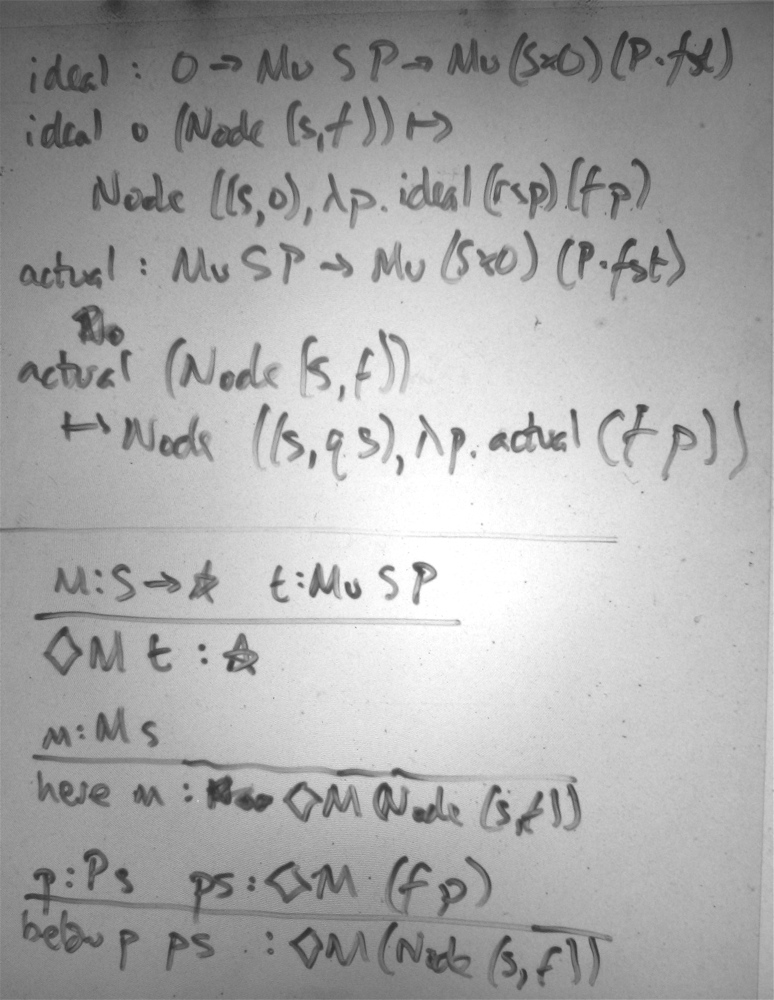 ideal : O → Mu S P → Mu (S×O) (P·fst)
ideal o (Node (s,f)) ↦
Node ((s,o), λp. ideal (r s p) (f p))
actual : Mu S P → Mu (S×O) (P·fst)
actual (Node (s,f))
↦ Node ((s, q s), λp. actual (f p))
M:S→☆ t:Mu S P
◇M t : ☆
m:M s
here m : ◇M (Node (s,f))
p:P s ps:◇M (f p)
below p ps : ◇M (Node (s,f))